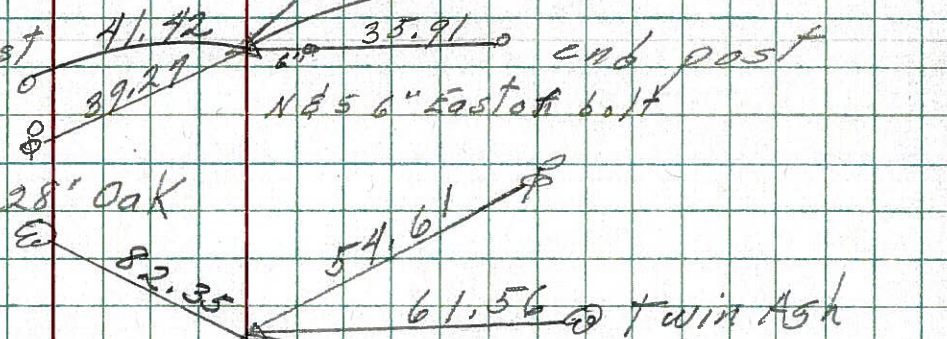 st 41.42 35.91 end post
39.27 6"
N & S 6" East of bolt
28" Oak
54.61
82.35
61.56 Twin Ash